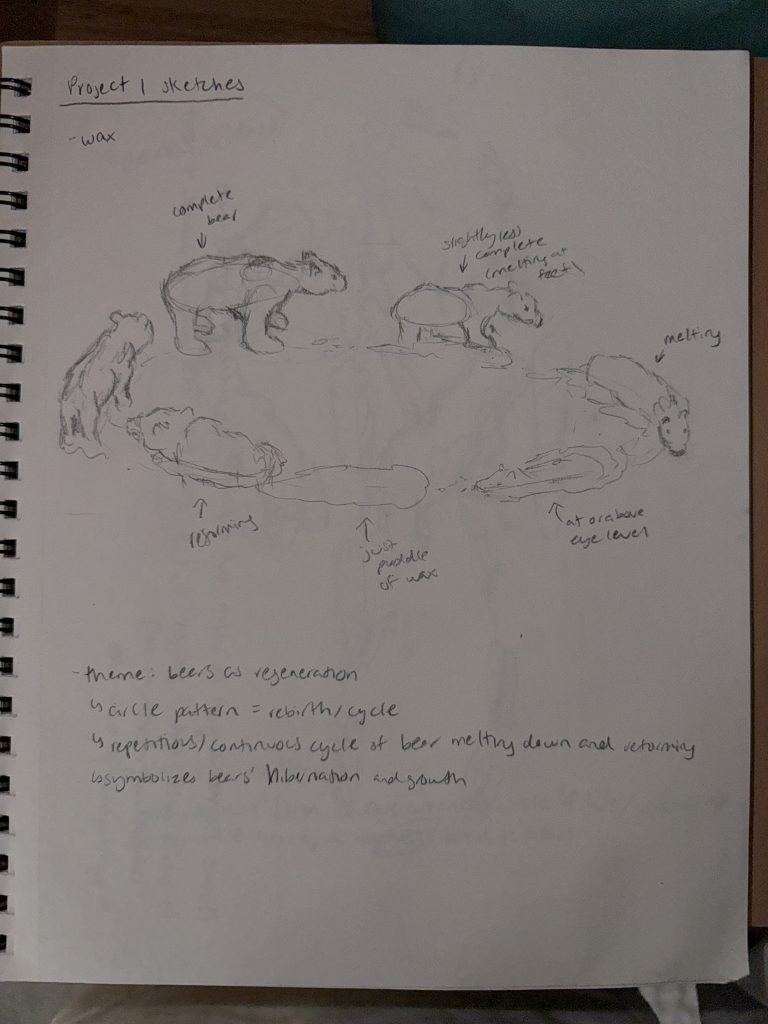 Project 1 sketches
- wax
complete
bear
slightly less
complete
(melting at
feet)
melting
at or above
eye level
reforming
just
puddle
of wax
- theme: bears as regeneration
↳ circle pattern = rebirth/cycle
↳ repetitious/continuous cycle of bear melting down and reforming
↳ symbolizes bears' hibernation and growth